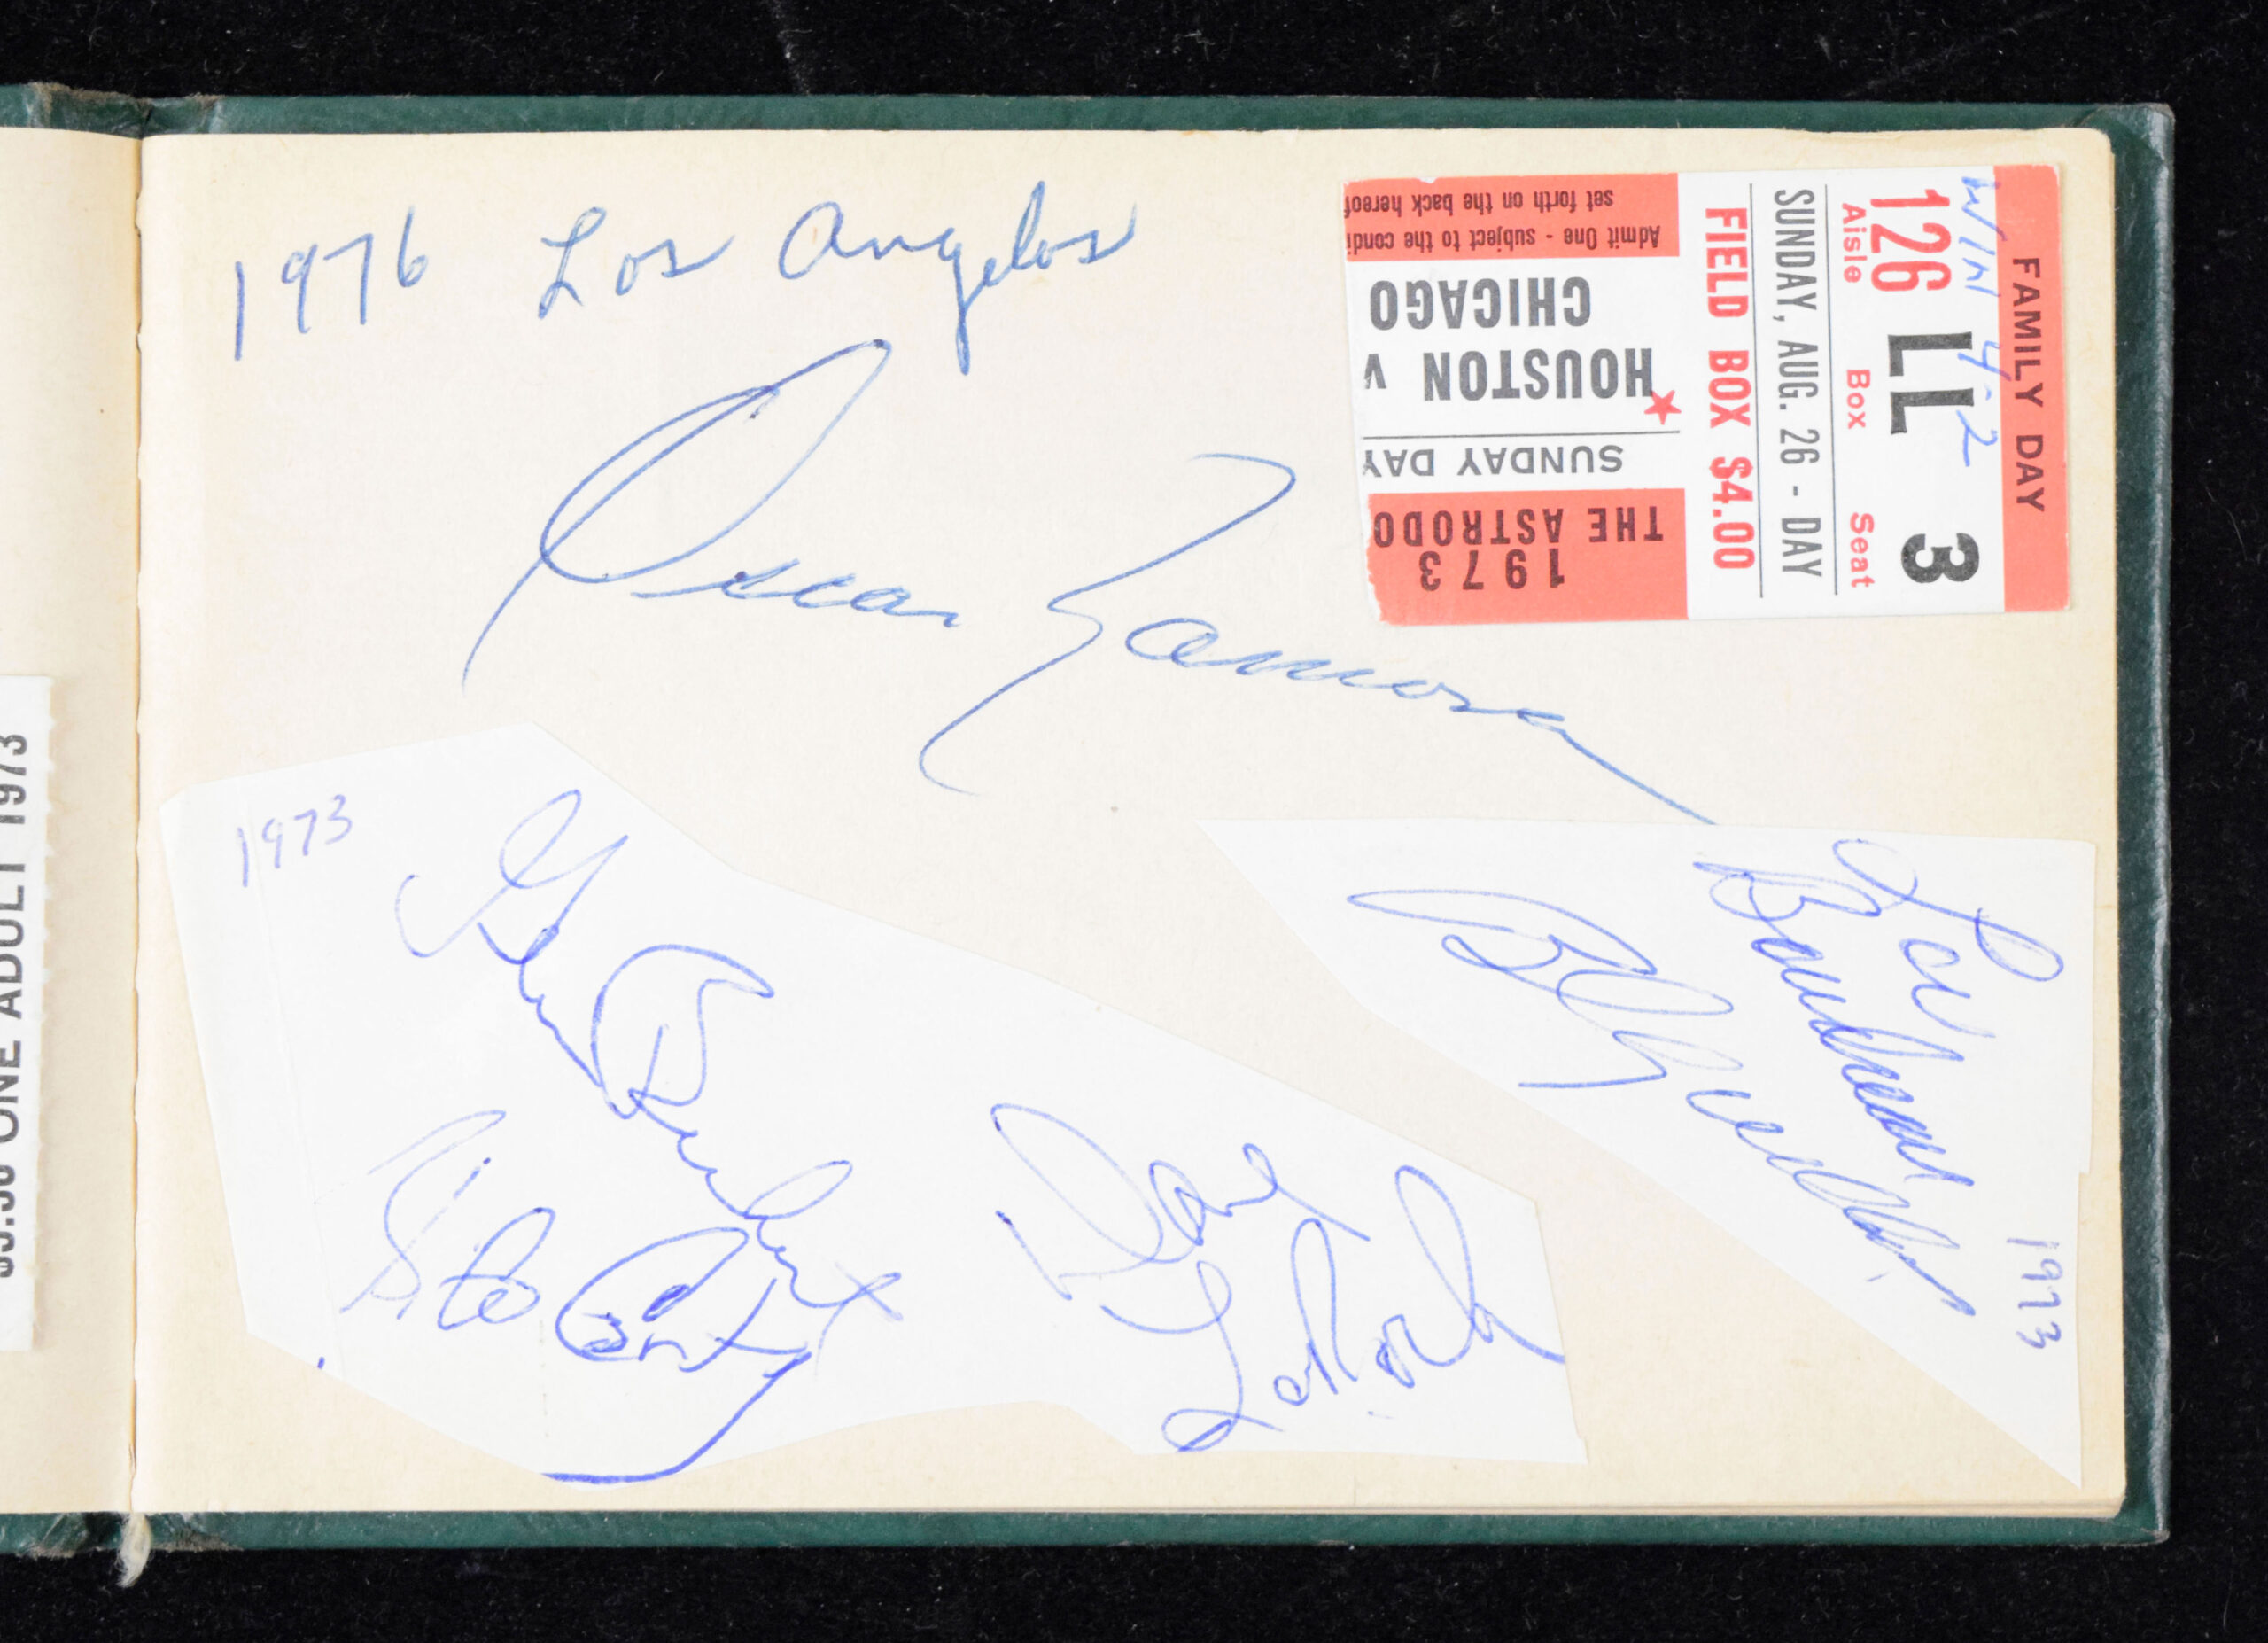 1976 Los Angelos
Oscar Zamora
FAMILY DAY
WIN 4-2
126 LL 3
Aisle Box Seat
SUNDAY, AUG. 26 - DAY
FIELD BOX $4.00
1973
THE ASTRODO
SUNDAY DAY
HOUSTON v
CHICAGO
Admit One - subject to the condi
set forth on the back hereof
1973
Glenn Beckert
Rico Carty
Dave LaRoche
Lou
Boudreau
1973
ONE ADULT 1973